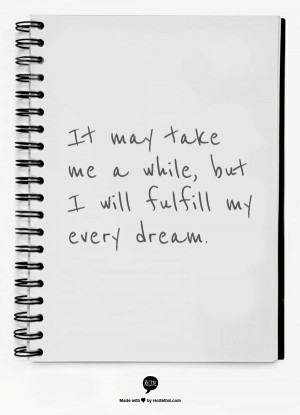 It may take
me a while, but
I will fulfill my
every dream.
RECITE
Made with ♥ by recitethis.com